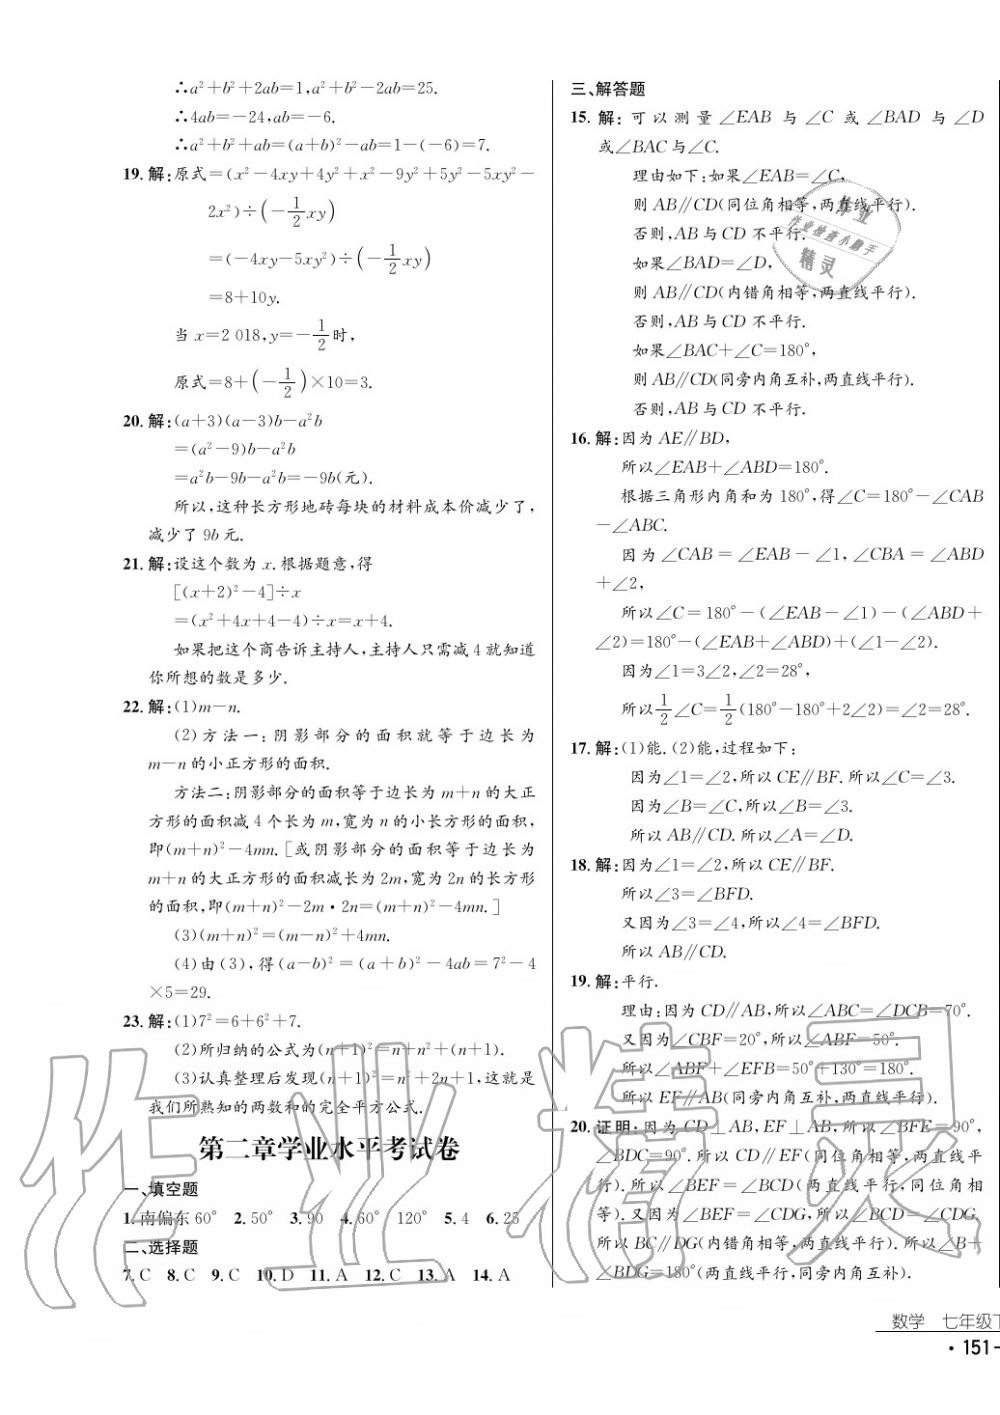 ∴a²+b²+2ab=1,a²+b²-2ab=25.
∴4ab=-24,ab=-6.
∴a²+b²+ab=(a+b)²-ab=1-(-6)=7.
19.解:原式=(x²-4xy+4y²+x²-9y²+5y²-5xy²-
2x²)÷(-1/2xy)
=(-4xy-5xy²)÷(-1/2xy)
=8+10y.
当x=2 018,y=-1/2时,
原式=8+(-1/2)×10=3.
20.解:(a+3)(a-3)b-a²b
=(a²-9)b-a²b
=a²b-9b-a²b=-9b(元).
所以,这种长方形地砖每块的材料成本价减少了,
减少了9b元.
21.解:设这个数为x.根据题意,得
[(x+2)²-4]÷x
=(x²+4x+4-4)÷x=x+4.
如果把这个商告诉主持人,主持人只需减4就知道
你所想的数是多少.
22.解:(1)m-n.
(2)方法一:阴影部分的面积就等于边长为
m-n的小正方形的面积.
方法二:阴影部分的面积等于边长为m+n的大正
方形的面积减4个长为m,宽为n的小长方形的面积,
即(m+n)²-4mn.[或阴影部分的面积等于边长为
m+n的大正方形的面积减长为2m,宽为2n的长方形
的面积,即(m+n)²-2m·2n=(m+n)²-4mn.]
(3)(m+n)²=(m-n)²+4mn.
(4)由(3),得(a-b)²=(a+b)²-4ab=7²-4
×5=29.
23.解:(1)7²=6+6²+7.
(2)所归纳的公式为(n+1)²=n+n²+(n+1).
(3)认真整理后发现(n+1)²=n²+2n+1,这就是
我们所熟知的两数和的完全平方公式.
第二章学业水平考试卷
一、填空题
1.南偏东60° 2.50° 3.90 4.60° 120° 5.4 6.25
二、选择题
7.C 8.C 9.C 10.D 11.A 12.C 13.A 14.A
三、解答题
15.解:可以测量∠EAB与∠C或∠BAD与∠D
或∠BAC与∠C.
理由如下:如果∠EAB=∠C,
则AB∥CD(同位角相等,两直线平行).
否则,AB与CD不平行.
如果∠BAD=∠D,
则AB∥CD(内错角相等,两直线平行).
否则,AB与CD不平行.
如果∠BAC+∠C=180°,
则AB∥CD(同旁内角互补,两直线平行).
否则,AB与CD不平行.
16.解:因为AE∥BD,
所以∠EAB+∠ABD=180°.
根据三角形内角和为180°,得∠C=180°-∠CAB
-∠ABC.
因为∠CAB=∠EAB-∠1,∠CBA=∠ABD
+∠2,
所以∠C=180°-(∠EAB-∠1)-(∠ABD+
∠2)=180°-(∠EAB+∠ABD)+(∠1-∠2).
因为∠1=3∠2,∠2=28°,
所以1/2∠C=1/2(180°-180°+2∠2)=∠2=28°.
17.解:(1)能.(2)能,过程如下:
因为∠1=∠2,所以CE∥BF.所以∠C=∠3.
因为∠B=∠C,所以∠B=∠3.
所以AB∥CD.所以∠A=∠D.
18.解:因为∠1=∠2,所以CE∥BF.
所以∠3=∠BFD.
又因为∠3=∠4,所以∠4=∠BFD.
所以AB∥CD.
19.解:平行.
理由:因为CD∥AB,所以∠ABC=∠DCB=70°.
又因为∠CBF=20°,所以∠ABF=50°.
所以∠ABF+∠EFB=50°+130°=180°.
所以EF∥AB(同旁内角互补,两直线平行).
20.证明:因为CD⊥AB,EF⊥AB,所以∠BFE=90°,
∠BDC=90°.所以CD∥EF(同位角相等,两直线平
行).所以∠BEF=∠BCD(两直线平行,同位角相
等).又因为∠BEF=∠CDG,所以∠BCD=∠CDG.
所以BC∥DG(内错角相等,两直线平行).所以∠B+
∠BDG=180°(两直线平行,同旁内角互补).
作业
作业检查小助手
精灵
作业精灵
数学 七年级下
·151-